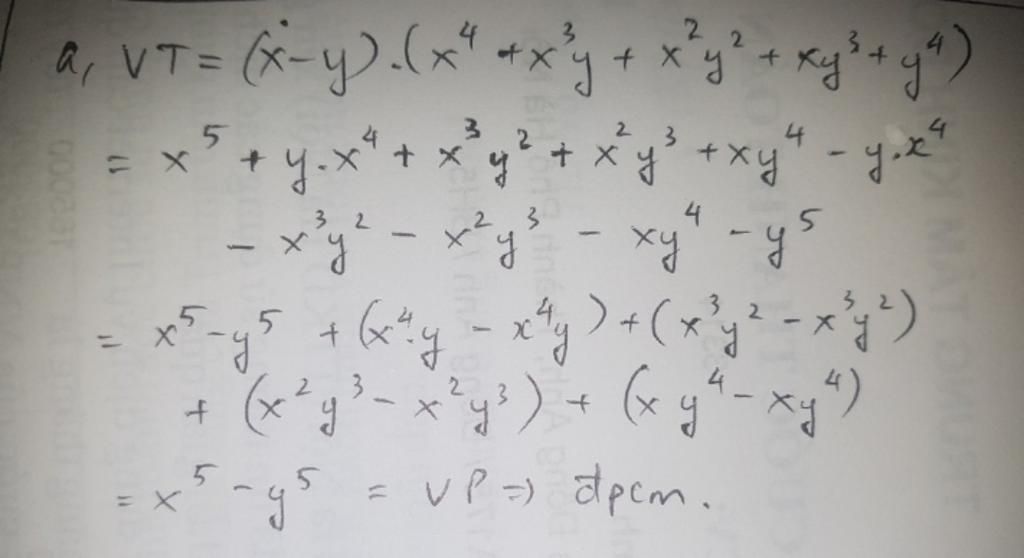 a, VT = (x-y).(x⁴ + x³y + x²y² + xy³ + y⁴)
= x⁵ + y.x⁴ + x³y² + x²y³ + xy⁴ - y.x⁴
- x³y² - x²y³ - xy⁴ - y⁵
= x⁵ - y⁵ + (x⁴.y - x⁴y) + (x³y² - x³y²)
+ (x²y³ - x²y³) + (xy⁴ - xy⁴)
= x⁵ - y⁵ = VP => đpcm.